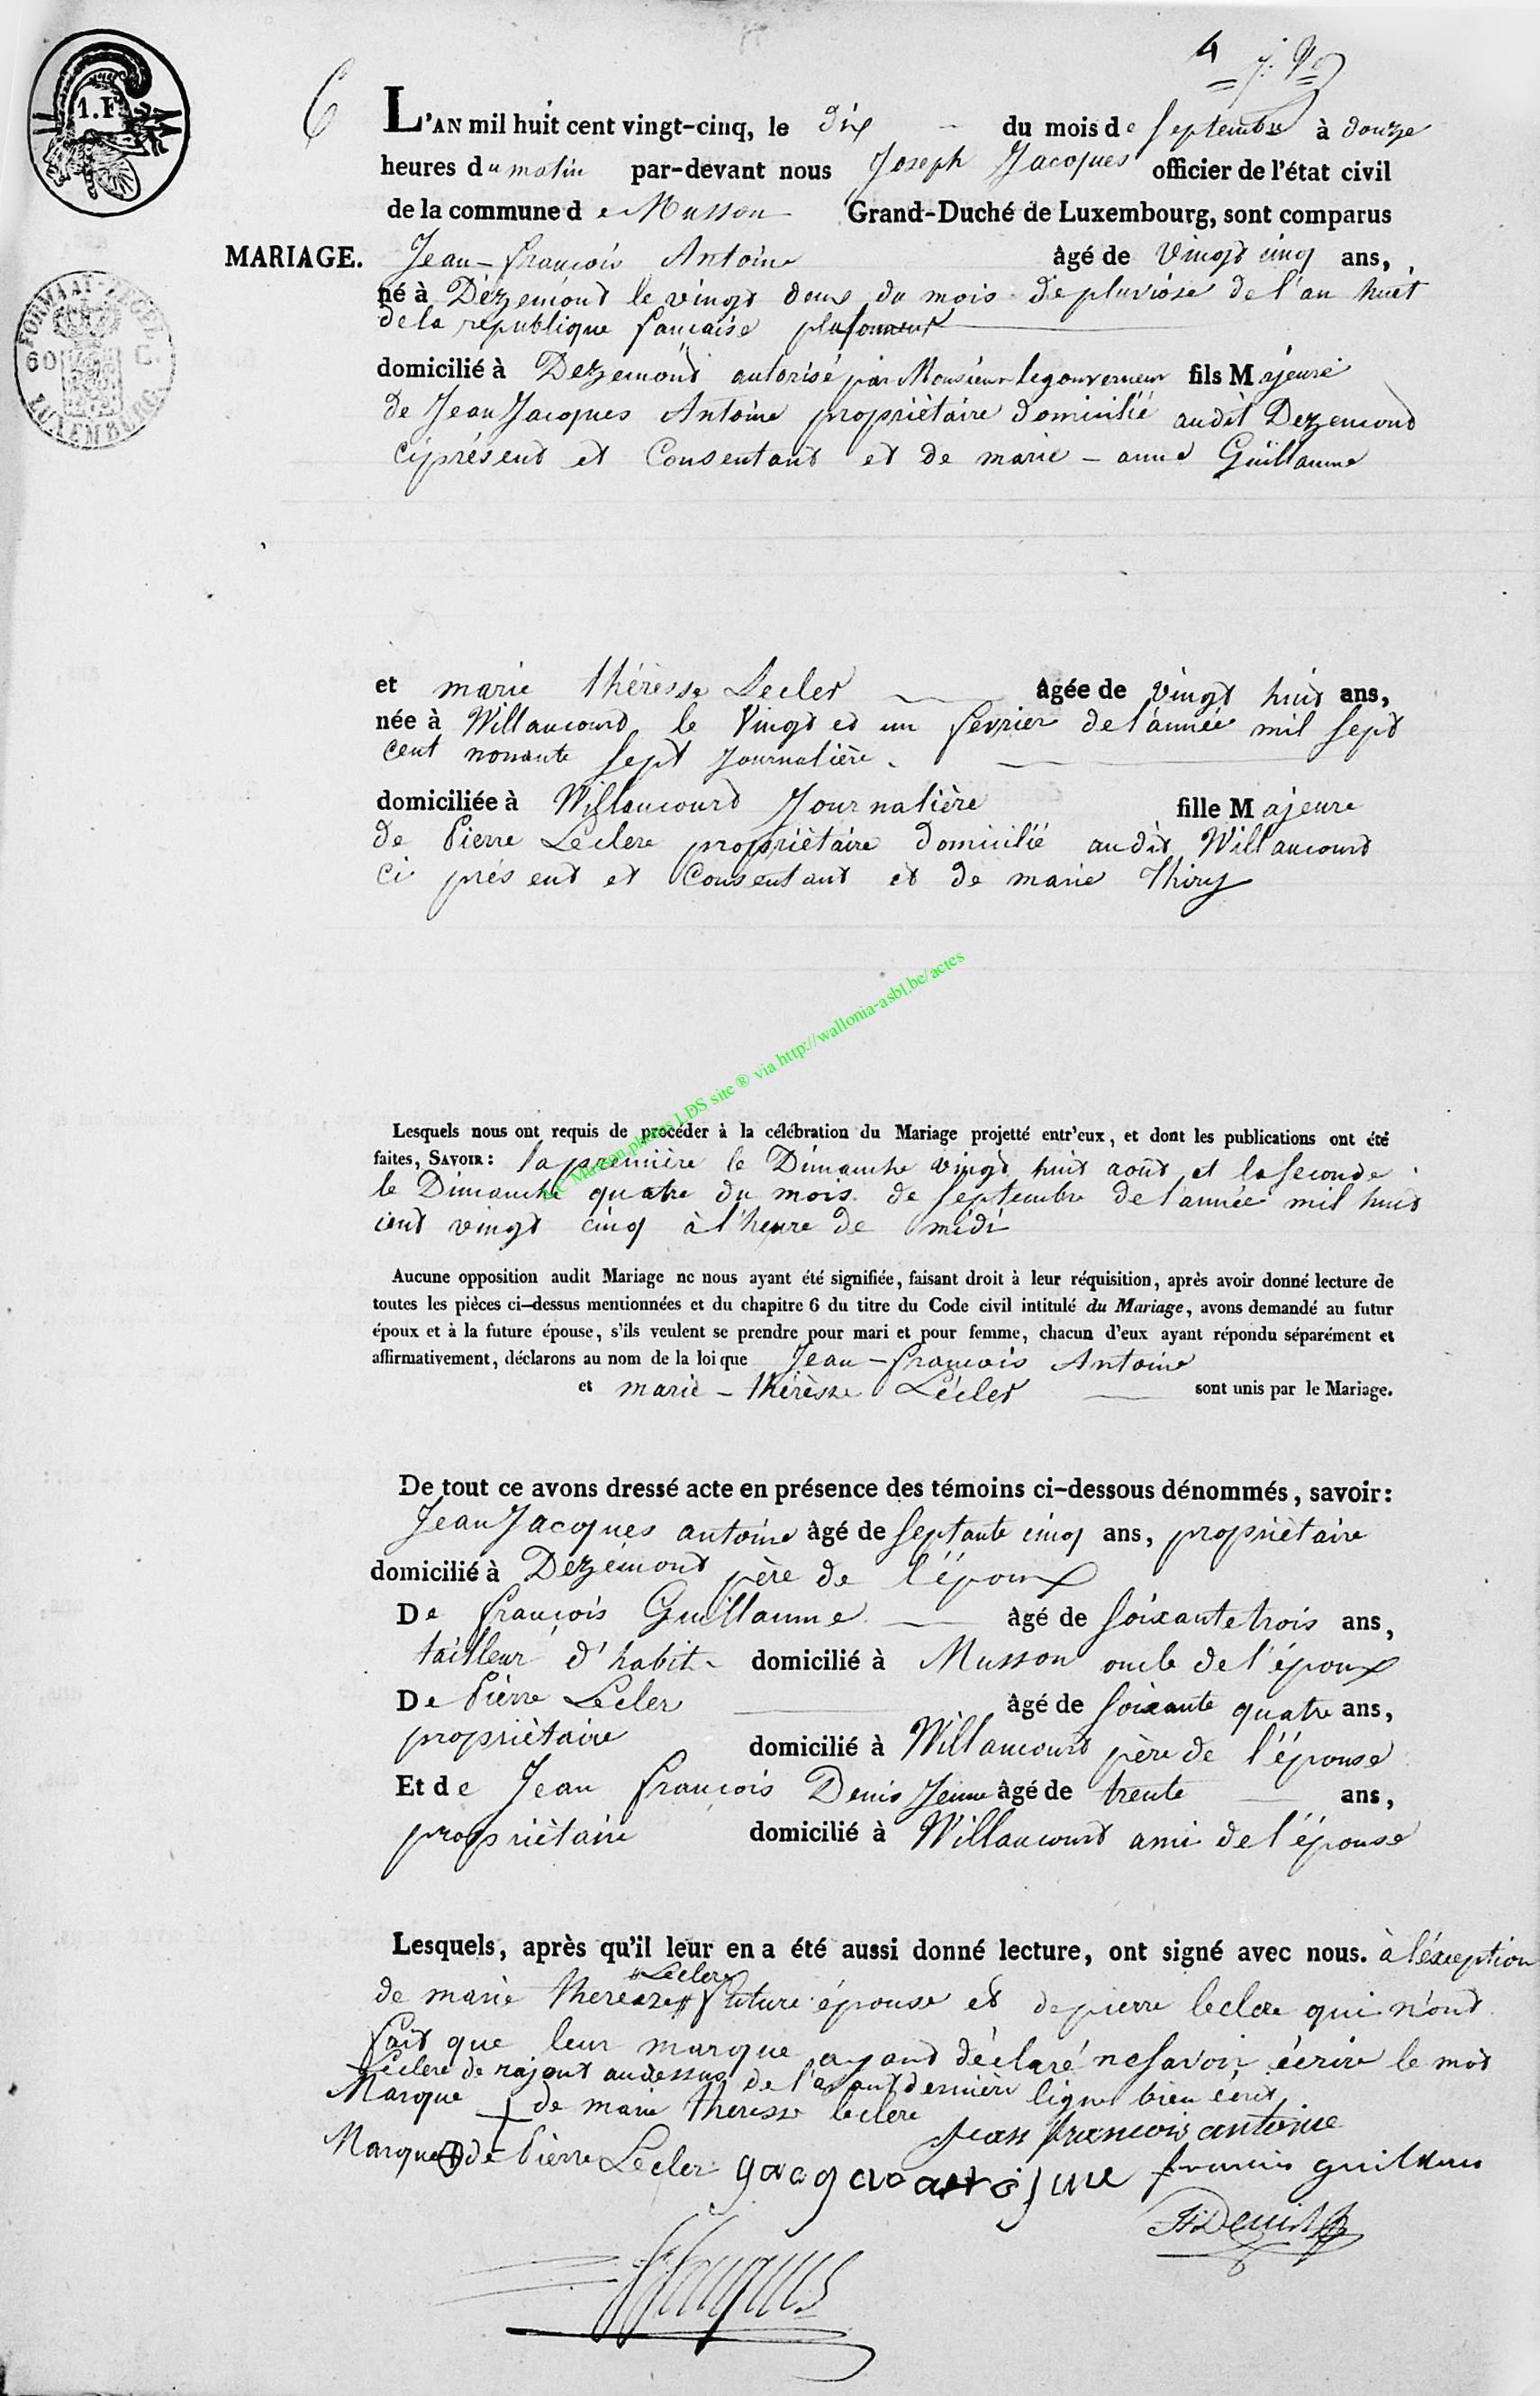 4
1.F
6 L'AN mil huit cent vingt-cinq, le dix du mois de Septembre à douze
heures du matin par-devant nous Joseph Jacques officier de l'état civil
de la commune de Musson Grand-Duché de Luxembourg, sont comparus
MARIAGE. Jean-françois Antoine âgé de vingt cinq ans,
né à Dézemont le vingt deux du mois de pluviose de l'an huit
de la republique francaise plafonneur
FORMAAT-ZEGEL
60 C.
LUXEMBURG
domicilié à Dezemont autorisé par Monsieur le gouverneur fils Majeure
de Jean Jacques Antoine propriètaire domicilié audit Dezemont
ciprésent et Consentant et de marie-anne Guillaume
et marie thérèsse Lecler âgée de vingt huit ans,
née à Willancourt le vingt et un fevrier de l'année mil sept
cent nonante sept Journalière.
domiciliée à Willancourt Journalière fille Majeure
de Pierre Leclere propriètaire domicilié audit Willancourt
ci présent et Consentant et de marie Thiry
EC Musson photos LDS site ® via http://wallonia-asbl.be/actes
Lesquels nous ont requis de procéder à la célébration du Mariage projetté entr'eux, et dont les publications ont été
faites, SAVOIR: la première le Dimanche vingt huit août et la seconde
le Dimanche quatre du mois de septembre de l'année mil huit
cent vingt cinq à l'heure de midi
Aucune opposition audit Mariage ne nous ayant été signifiée, faisant droit à leur réquisition, après avoir donné lecture de
toutes les pièces ci-dessus mentionnées et du chapitre 6 du titre du Code civil intitulé du Mariage, avons demandé au futur
époux et à la future épouse, s'ils veulent se prendre pour mari et pour femme, chacun d'eux ayant répondu séparément et
affirmativement, déclarons au nom de la loi que Jean-francois Antoine
et marie-thérèsse Lécler sont unis par le Mariage.
De tout ce avons dressé acte en présence des témoins ci-dessous dénommés, savoir:
Jean Jacques antoine âgé de septante cinq ans, propriètaire
domicilié à Dezémont père de l'époux
De françois Guillaume âgé de soixante trois ans,
tailleur d'habit domicilié à Musson oncle de l'époux
De Pierre Lecler âgé de soixante quatre ans,
propriètaire domicilié à Willancourt père de l'épouse
Et de Jean françois Denis Jeune âgé de trente ans,
propriètaire domicilié à Willancourt ami de l'épouse
Lesquels, après qu'il leur en a été aussi donné lecture, ont signé avec nous. à l'éxception
Leclere
de marie therèsse future épouse et de pierre leclere qui n'ont
fait que leur marque ayant déclaré ne savoir écrire le mot
Leclere de rajout audessus de l'avant dernière ligne bien écrit
Marque de marie therèsse leclere
jean francois antoine
Marque de Pierre Lecler francois guillaume
Denis
JJacques